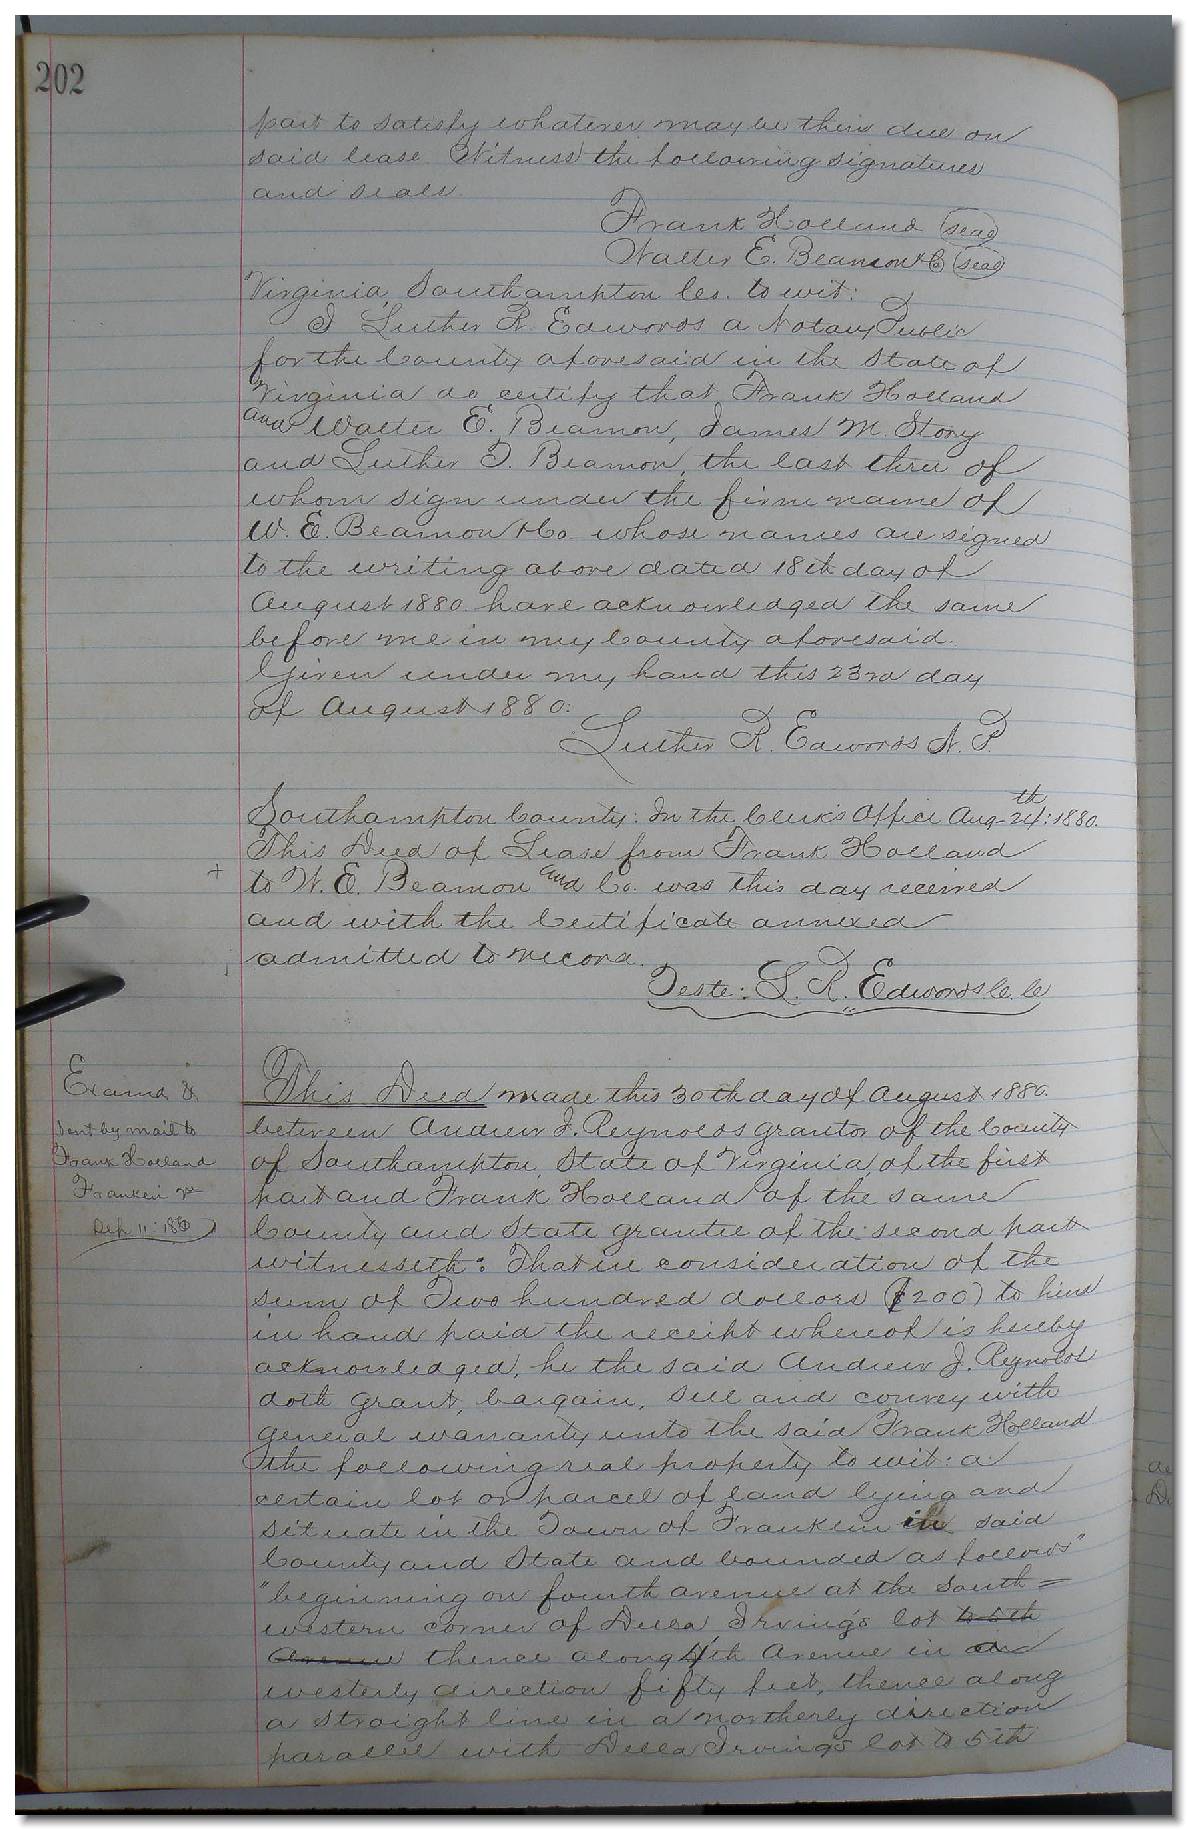 202
part to satisfy whatever may be then due on
said lease. Witness the following signatures
and seals.
Frank Holland (seal)
Walter E. Beamon & Co (seal)
Virginia, Southampton Co. to wit:
I Luther R. Edwards a Notary Public
for the County aforesaid in the State of
Virginia do certify that Frank Holland
and Walter E. Beamon, James M. Story
and Luther T. Beamon, the last three of
whom sign under the firm name of
W. E. Beamon & Co. whose names are signed
to the writing above dated 18th day of
August 1880 have acknowledged the same
before me in my County aforesaid.
Given under my hand this 23rd day
of August 1880.
Luther R. Edwards N. P.
Southampton County: In the Clerk's Office Aug-24th: 1880.
This Deed of Lease from Frank Holland
to W. E. Beamon and Co. was this day received
and with the Certificate annexed
admitted to record.
Teste: L. R. Edwards C. C
Examd &
sent by mail to
Frank Holland
Franklin Va
Sep 11: 1880
This Deed made this 30th day of August 1880.
between Andrew J. Reynolds grantor of the County
of Southampton State of Virginia, of the first
part and Frank Holland of the same
County and State grantee of the second part
witnesseth: That in consideration of the
sum of Two hundred dollars ($200) to him
in hand paid the receipt whereof is hereby
acknowledged, he the said Andrew J. Reynolds
doth grant, bargain, sell and convey with
general warranty unto the said Frank Holland
the following real property to wit: a
certain lot or parcel of land lying and
situate in the Town of Franklin in said
County and State and bounded as follows"
"beginning on fourth avenue at the south=
western corner of Della Irving's lot to 5th
Avenue thence along 4th Avenue in and
westerly direction fifty feet, thence along
a straight line in a northerly direction
parallel with Della Irving's lot to 5th